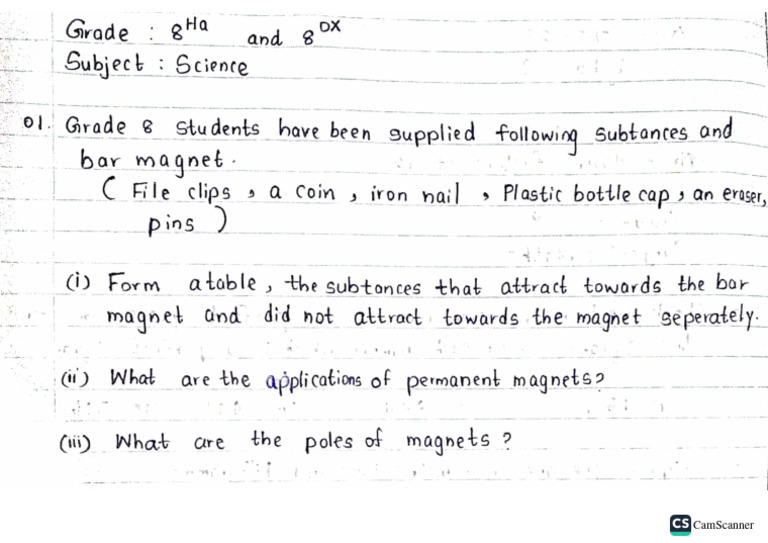 Grade : 8 Ha and 8 DX
Subject : Science
01. Grade 8 students have been supplied following subtances and
bar magnet.
( File clips , a coin , iron nail , Plastic bottle cap , an eraser,
pins )
(i) Form a table , the subtances that attract towards the bar
magnet and did not attract towards the magnet seperately.
(ii) What are the applications of permanent magnets?
(iii) What are the poles of magnets ?
CS CamScanner